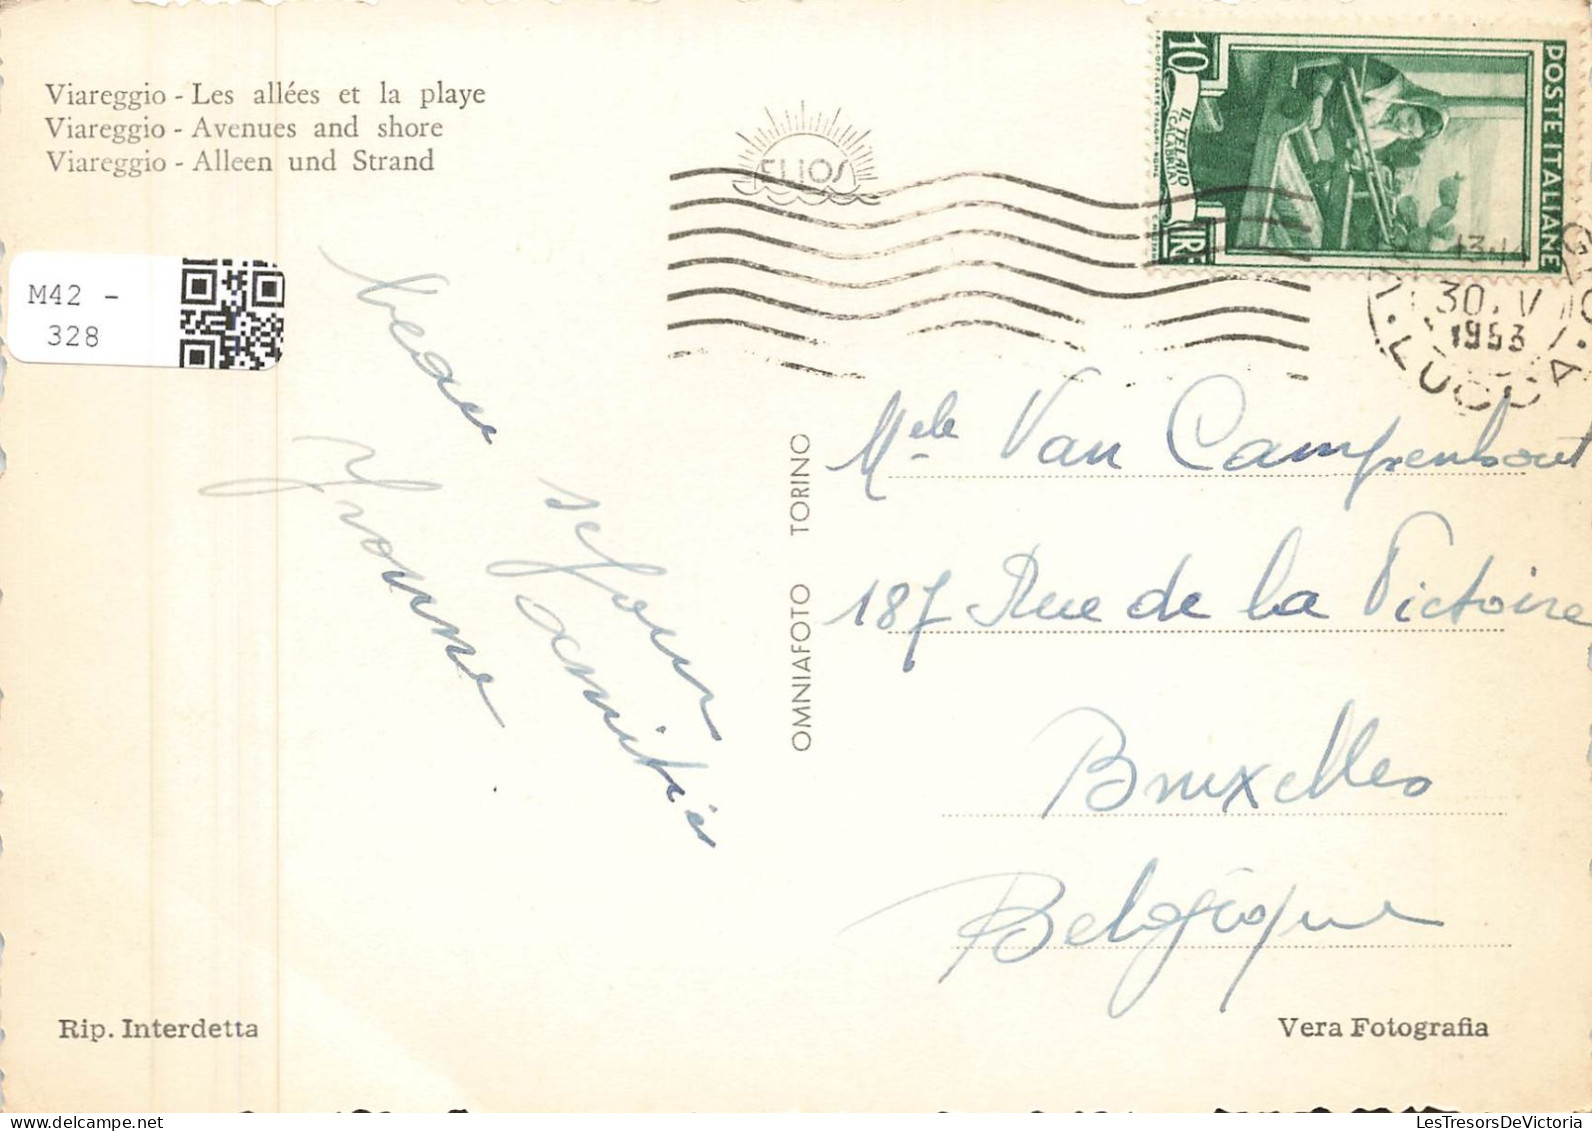 Viareggio - Les allées et la playe
Viareggio - Avenues and shore
Viareggio - Alleen und Strand
ELIOS
10
LIRE
IL TELAIO
CALABRIA
POSTE ITALIANE
13-14
30. V
1953
LUCCA
M42 -
328
beau
séjour
amitiés
Yvonne
OMNIAFOTO TORINO
Melle Van Campenhout
187 Rue de la Victoire
Bruxelles
Belgique
Rip. Interdetta
Vera Fotografia
LesTresorsDeVictoria